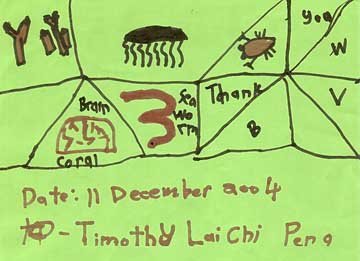 You
W
Thank
V
B
Brain
Coral
Sea
Worm
Date: 11 December 2004
- Timothy Lai Chi Peng